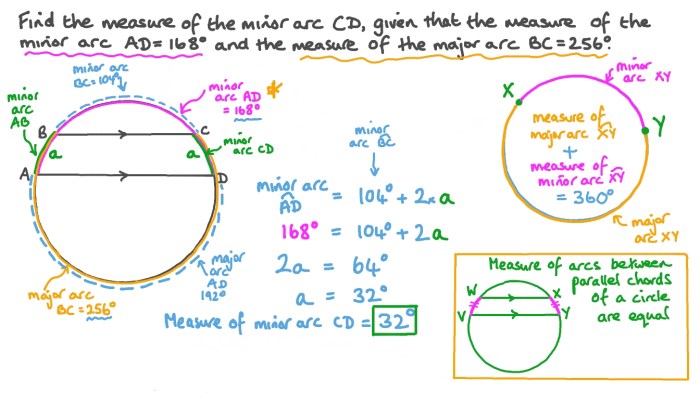 Find the measure of the minor arc CD, given that the measure of the
minor arc AD = 168° and the measure of the major arc BC = 256°.
minor arc
BC = 104°
minor
arc AD
= 168°
*
minor
arc
AB
B
C
a
a
minor
arc CD
A
D
major arc
BC = 256°
major
arc
AD
192°
minor
arc BC
minor arc
AD = 104° + 2 × a
168° = 104° + 2a
2a = 64°
a = 32°
Measure of minor arc CD = 32°
minor
arc XY
X
Y
measure of
major arc XY
+
measure of
minor arc XY
= 360°
major
arc XY
Measure of arcs between
parallel chords
of a circle
are equal
W
X
V
Y